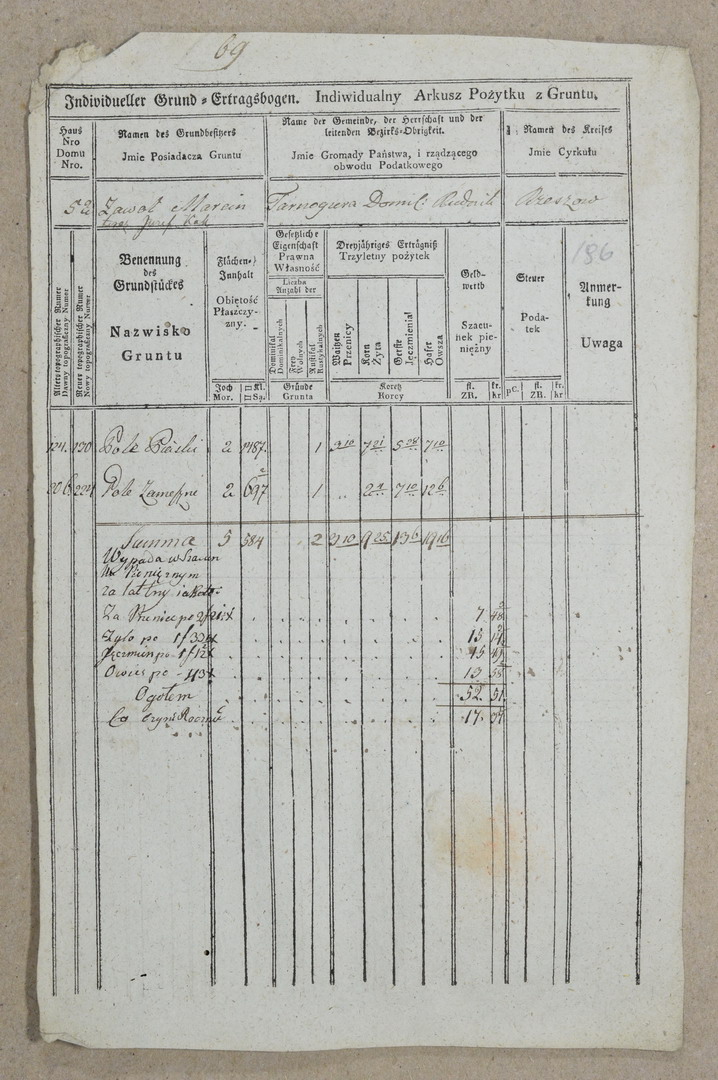 69
Individueller Grund-Ertragsbogen. Indiwidualny Arkusz Pożytku z Gruntu.
Haus Nro Domu Nro.
Namen des Grundbesitzers
Jmie Posiadacza Gruntu
Name der Gemeinde, der Herrschaft und der leitenden Bezirks-Obrigkeit.
Jmie Gromady Państwa, i rządzącego obwodu Podatkowego
Namen des Kreises
Jmie Cyrkułu
52 Zawoł Marcin Tarnogura Domil: Rudnik Rzeszow
teraz Jozef Kak
186
Alter topographischer Numer
Dawny topograficzny Numer
Neuer topographischer Numer
Nowy topograficzny Numer
Benennung
des
Grundstückes
Nazwisko
Gruntu
Flächen-
Innhalt
Obiętość
Płaszczy-
zny.
Joch Mor.
Kl. Są.
Gesetzliche
Eigenschaft
Prawna
Własność
Liczba
Anzahl der
Dominikal
Dominikalnych
Frey
Wolnych
Rustikal
Rustykalnych
Gründe
Grunta
Dreyjähriges Erträgniß
Trzyletny pożytek
Waitzen
Pszenicy
Korn
Żyta
Gerste
Jęczmienia
Hafer
Owsza
Koretz
Korcy
Geld-
werth
Szacu-
nek pie-
niężny
fl. ZR.
kr. kr
Steuer
Poda-
tek
pC.
fl. ZR.
kr. kr
Anmer-
kung
Uwaga
124. 190 Pole Piaski 2 1487. 1 3 10 7 21 5 28 7 10
306 224 Pole Zamezne 2 697 1 .. 2 4 7 10 12 6
Summa 5 584 2 3 10 9 25 13 6 19 16
Wypada w Szacun
ku Pienięznym
za lat trzy iako:
Za Pszenice po 2f 7 48
Zyto po 1f 32 15 14
Jęczmien po 1f 12 15 49
Owies po - 43 13 58
Ogołem 52. 51
Co czyni Roczni 17.